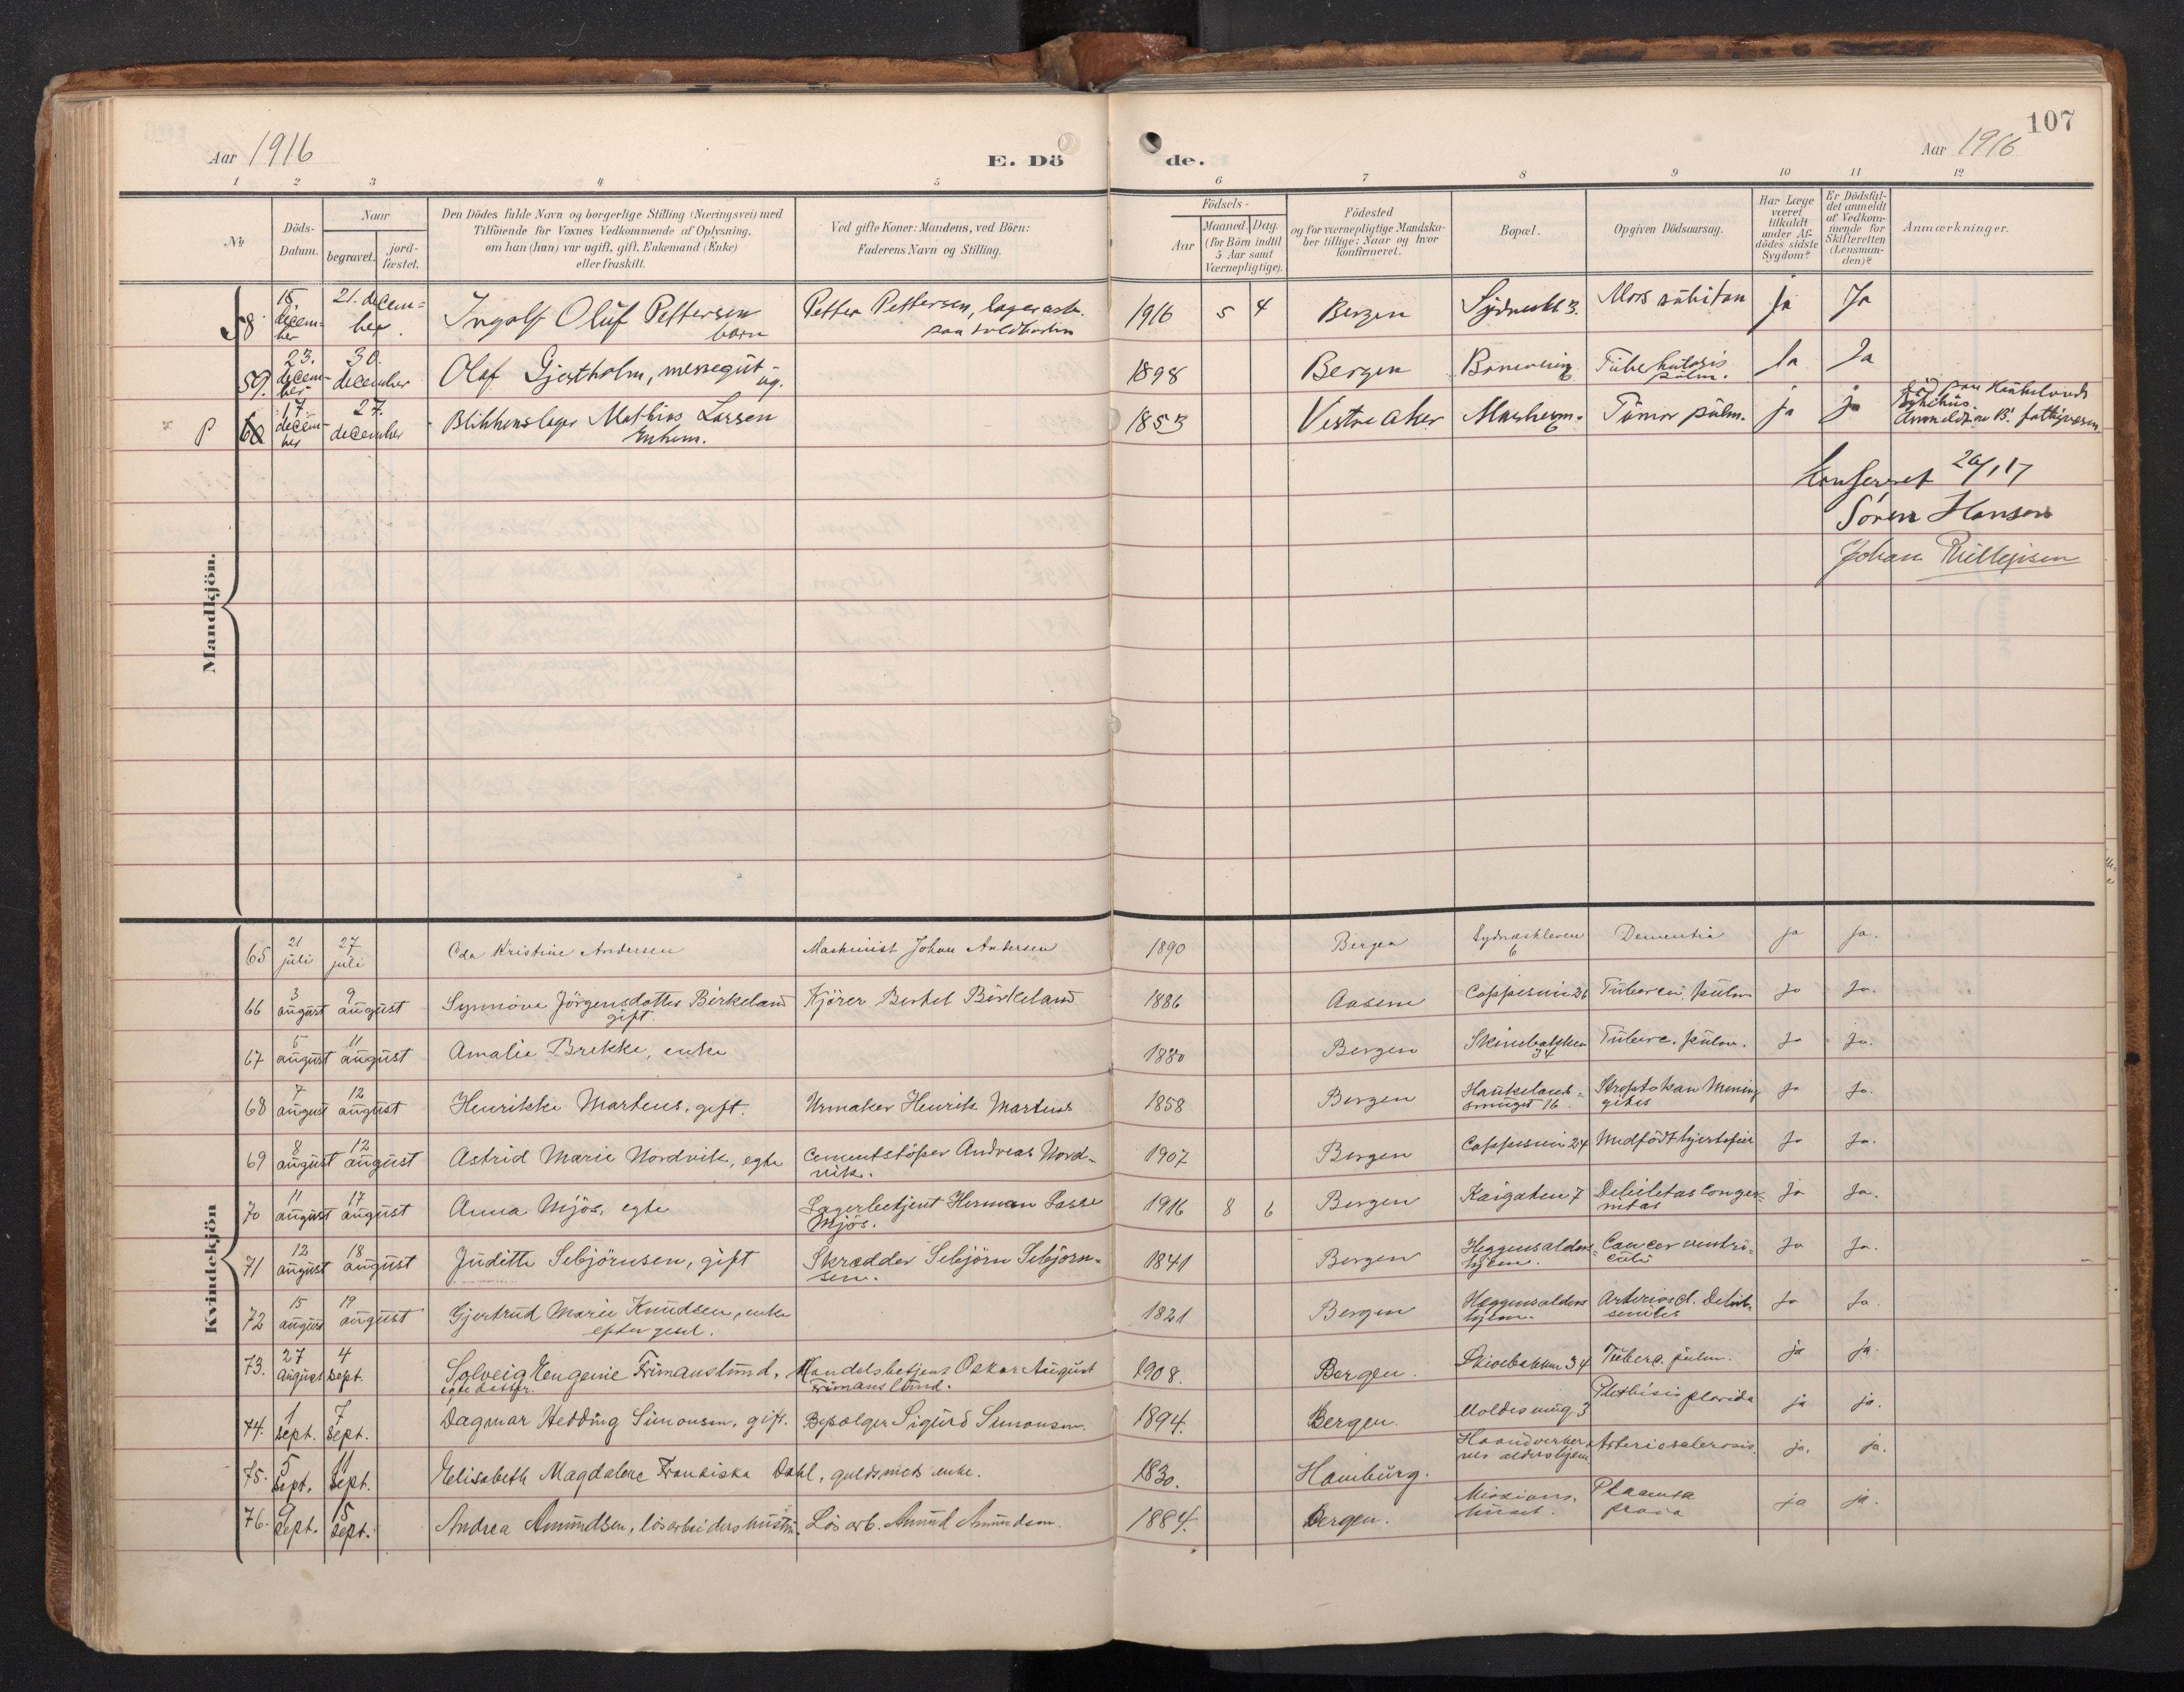 107
Aar 1916 E. Dö de. Aar 1916
1 2 3 4 5 6 7 8 9 10 11 12
No
Döds-Datum.
Naar
begravet.
jord-fæstet.
Den Dödes fulde Navn og borgerlige Stilling (Næringsvei) med
Tilföiende for Voxnes Vedkommende af Oplysning,
om han (hun) var ugift, gift, Enkemand (Enke)
eller fraskilt.
Ved gifte Koner: Mandens, ved Börn:
Faderens Navn og Stilling.
Födsels-
Aar
Maaned. Dag.
(for Börn indtil
5 Aar samt
Værnepligtige).
Födested
og for værnepligtige Mandska-
ber tillige: Naar og hvor
konfirmeret.
Bopæl.
Opgiven Dödsaarsag.
Har Læge
været
tilkaldt
under Af-
dödes sidste
Sygdom?
Er Dödsfal-
det anmeldt
af Vedkom-
mende for
Skifteretten
(Lensman-
den)?
Anmærkninger.
Mandkjön.
58 15. decem-ber 21. decem=ber. Ingolf Oluf Pettersen barn Petter Pettersen, lagerarb. paa toldboden 1916 5 4 Bergen 3. Mors subitan ja Ja
59. 23. decem-ber 30. december Olaf Gjestholm, messegut ug. 1898 Bergen 6 Tuberkulosis pulm. Ja Ja
P 60 17 decem-ber 27. december Blikkenslager Mathias Larsen Enkem. 1853 Vestre Aker 6 Tumor pulm. ja ja Död paa Haukelands sykehus. Anmeldt av B. fattigvæsen
Konferert 20/1 17
Sören Hansen
Johan Phillipsen
Kvindekjön
65 21 juli 27 juli Kristine Andersen Maskinist Johan Andersen 1890 Bergen Sydneskleven 6 Dementia ja ja.
66 3 august 9 august Synnöve Jörgensdotter Birkeland gift Kjörer Bertel Birkeland 1886 Aasene Coppesmu 26 Tubercu. pulm. ja ja.
67 5 august 11 august Amalie Brekke, enke 1880 Bergen Skivebakken 34 Tuberc. pulm. ja ja.
68 7 august 12 august Henrikke Martens, gift. Urmaker Henrik Martens 1858 Bergen Haukelands=smuget 16. Meningitis ja ja.
69 8 august 12 august Astrid Marie Nordvik, egte Cementstöper Andreas Nord-vik. 1907 Bergen Coppesmu 24 Medfödt hjertefeil ja ja.
70 11 august 17 august Anna Mjös, egte Lagerbetjent Herman Lasse Mjös. 1916 8 6 Bergen Kaigaten 7 Debilitas ja ja.
71 12 august 18 august Juditte Sebjörnsen, gift Skrædder Sebjörn Sebjörn=sen. 1841 Bergen Heggens alders=hjem. Cancer ventri=culi ja ja.
72 15 august 19 august Gjertrud Marie Knudsen, enke efter gesel. 1821 Bergen Heggens alders hjem. Arterioscl. Debilit. senilis ja ja.
73. 27 august 4 sept. Solveig Eugenie Frimanslund, egte datter. Handelsbetjent Oskar August Frimanslund. 1908. Bergen. Skivebakken 34 Tuberc. pulm. ja ja.
74. 1 sept. 7 sept. Dagmar Hedding Simonsen, gift. Sigurd Simonsen. 1894. Bergen. 3 Phthisis florida ja ja.
75. 5 sept. 11 sept. Elisabeth Magdalene Franciska Dahl, guldsmeds enke. 1830. Hamburg. Haandverker-nes aldershjem Arteriosclerosis. ja. ja.
76. 9 sept. 15 sept. Andrea Amundsen, lösarbeiders hustru. Lös arb. Amund Amundsen. 1884. Bergen. Missions-huset. Placenta prævia ja ja.